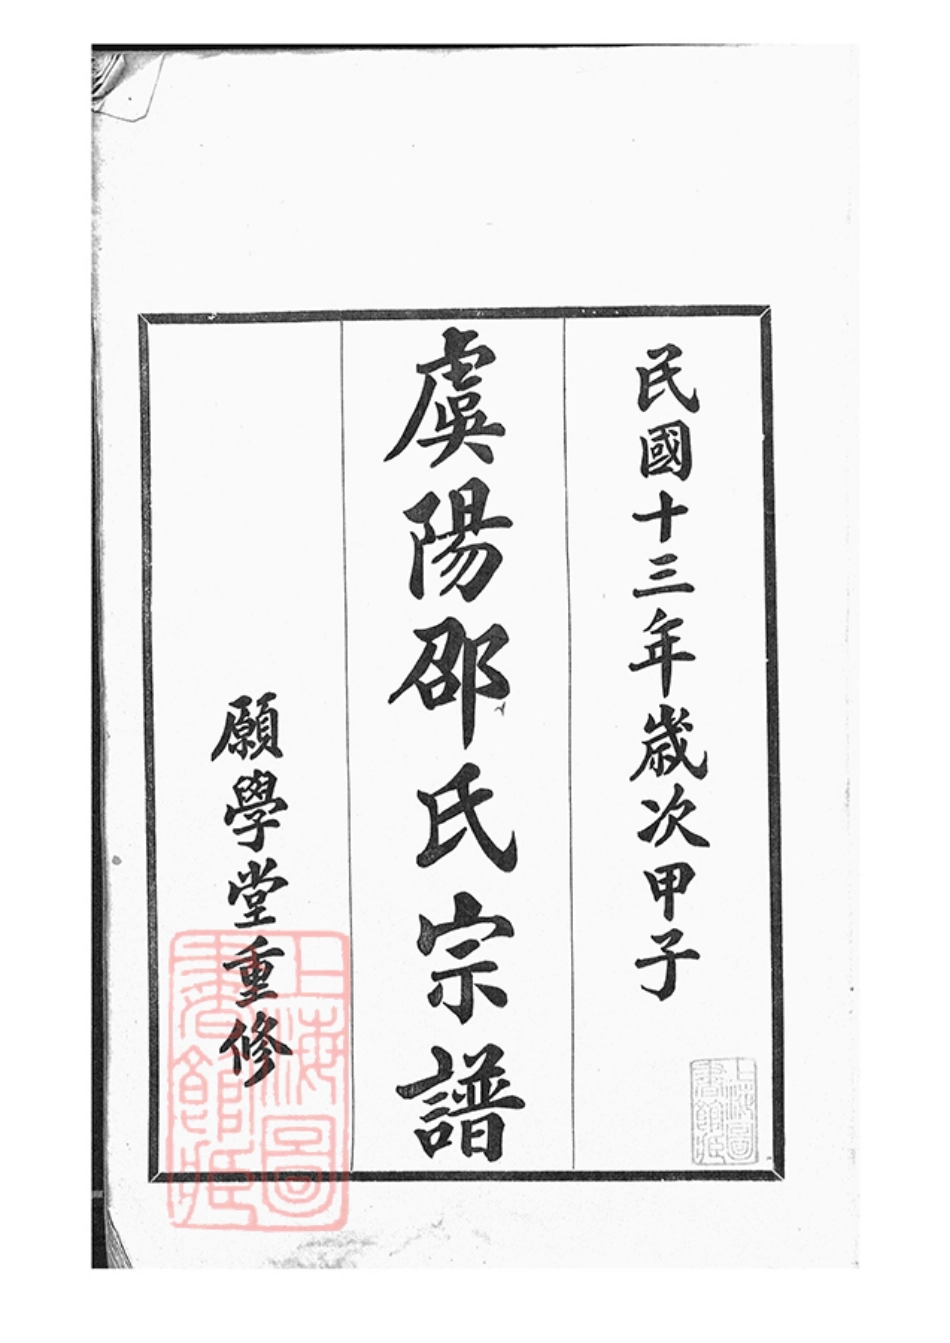 民國十三年歲次甲子
虞陽邵氏宗譜
願學堂重修
上海圖
書館藏
上海圖
書館藏